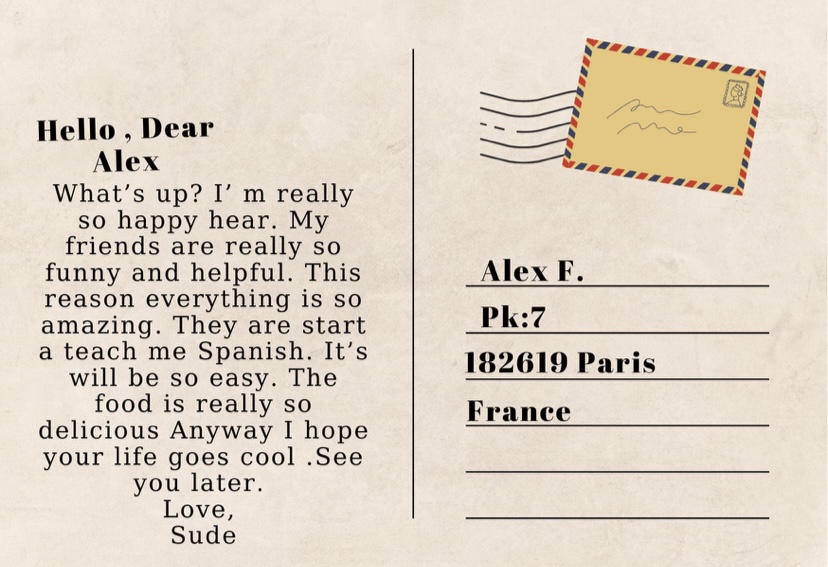 Hello , Dear
Alex
What's up? I' m really
so happy hear. My
friends are really so
funny and helpful. This
reason everything is so
amazing. They are start
a teach me Spanish. It's
will be so easy. The
food is really so
delicious Anyway I hope
your life goes cool .See
you later.
Love,
Sude
Alex F.
Pk:7
182619 Paris
France